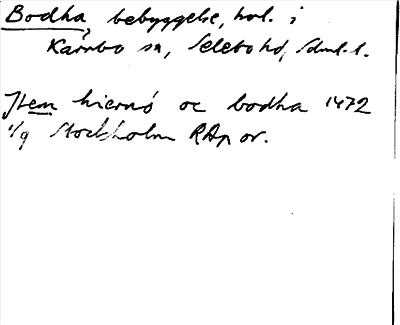 Bodha bebyggelse, hvl. i
Kärnbo sn, Selebo hd, Sdml. l.
Jtem hiernö oc bodha 1472
1/9 Stockholm RAp or.